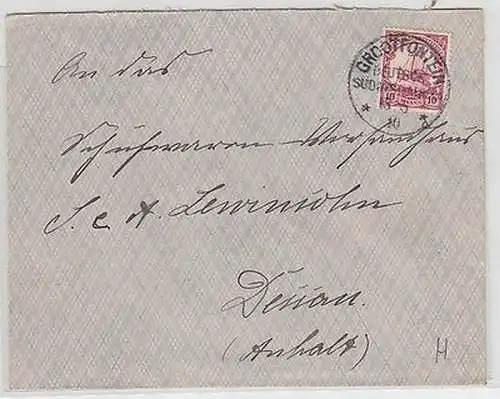 GROOTFONTEIN
DEUTSCH
SÜDWESTAFRIKA
10 10
10
An das
Schuhwaren-Versandhaus
S. & A. Lewinsohn
Dessau.
(Anhalt)
H